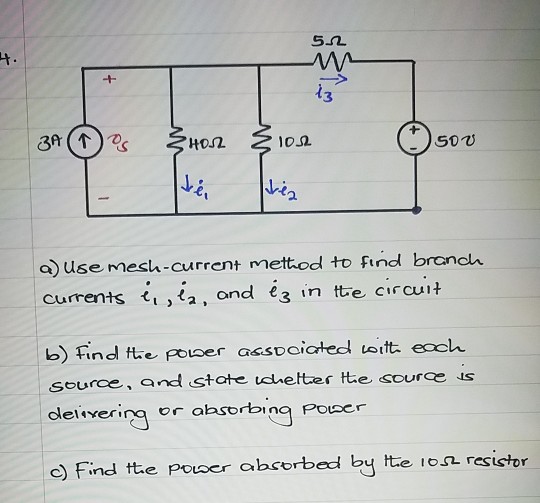 4.
5Ω
i3
+
3A
vs
40Ω
10Ω
+
-
50v
i1
i2
-
a) Use mesh-current method to find branch
currents i1, i2, and i3 in the circuit
b) Find the power associated with each
source, and state whether the source is
delivering or absorbing power
c) Find the power absorbed by the 10Ω resistor